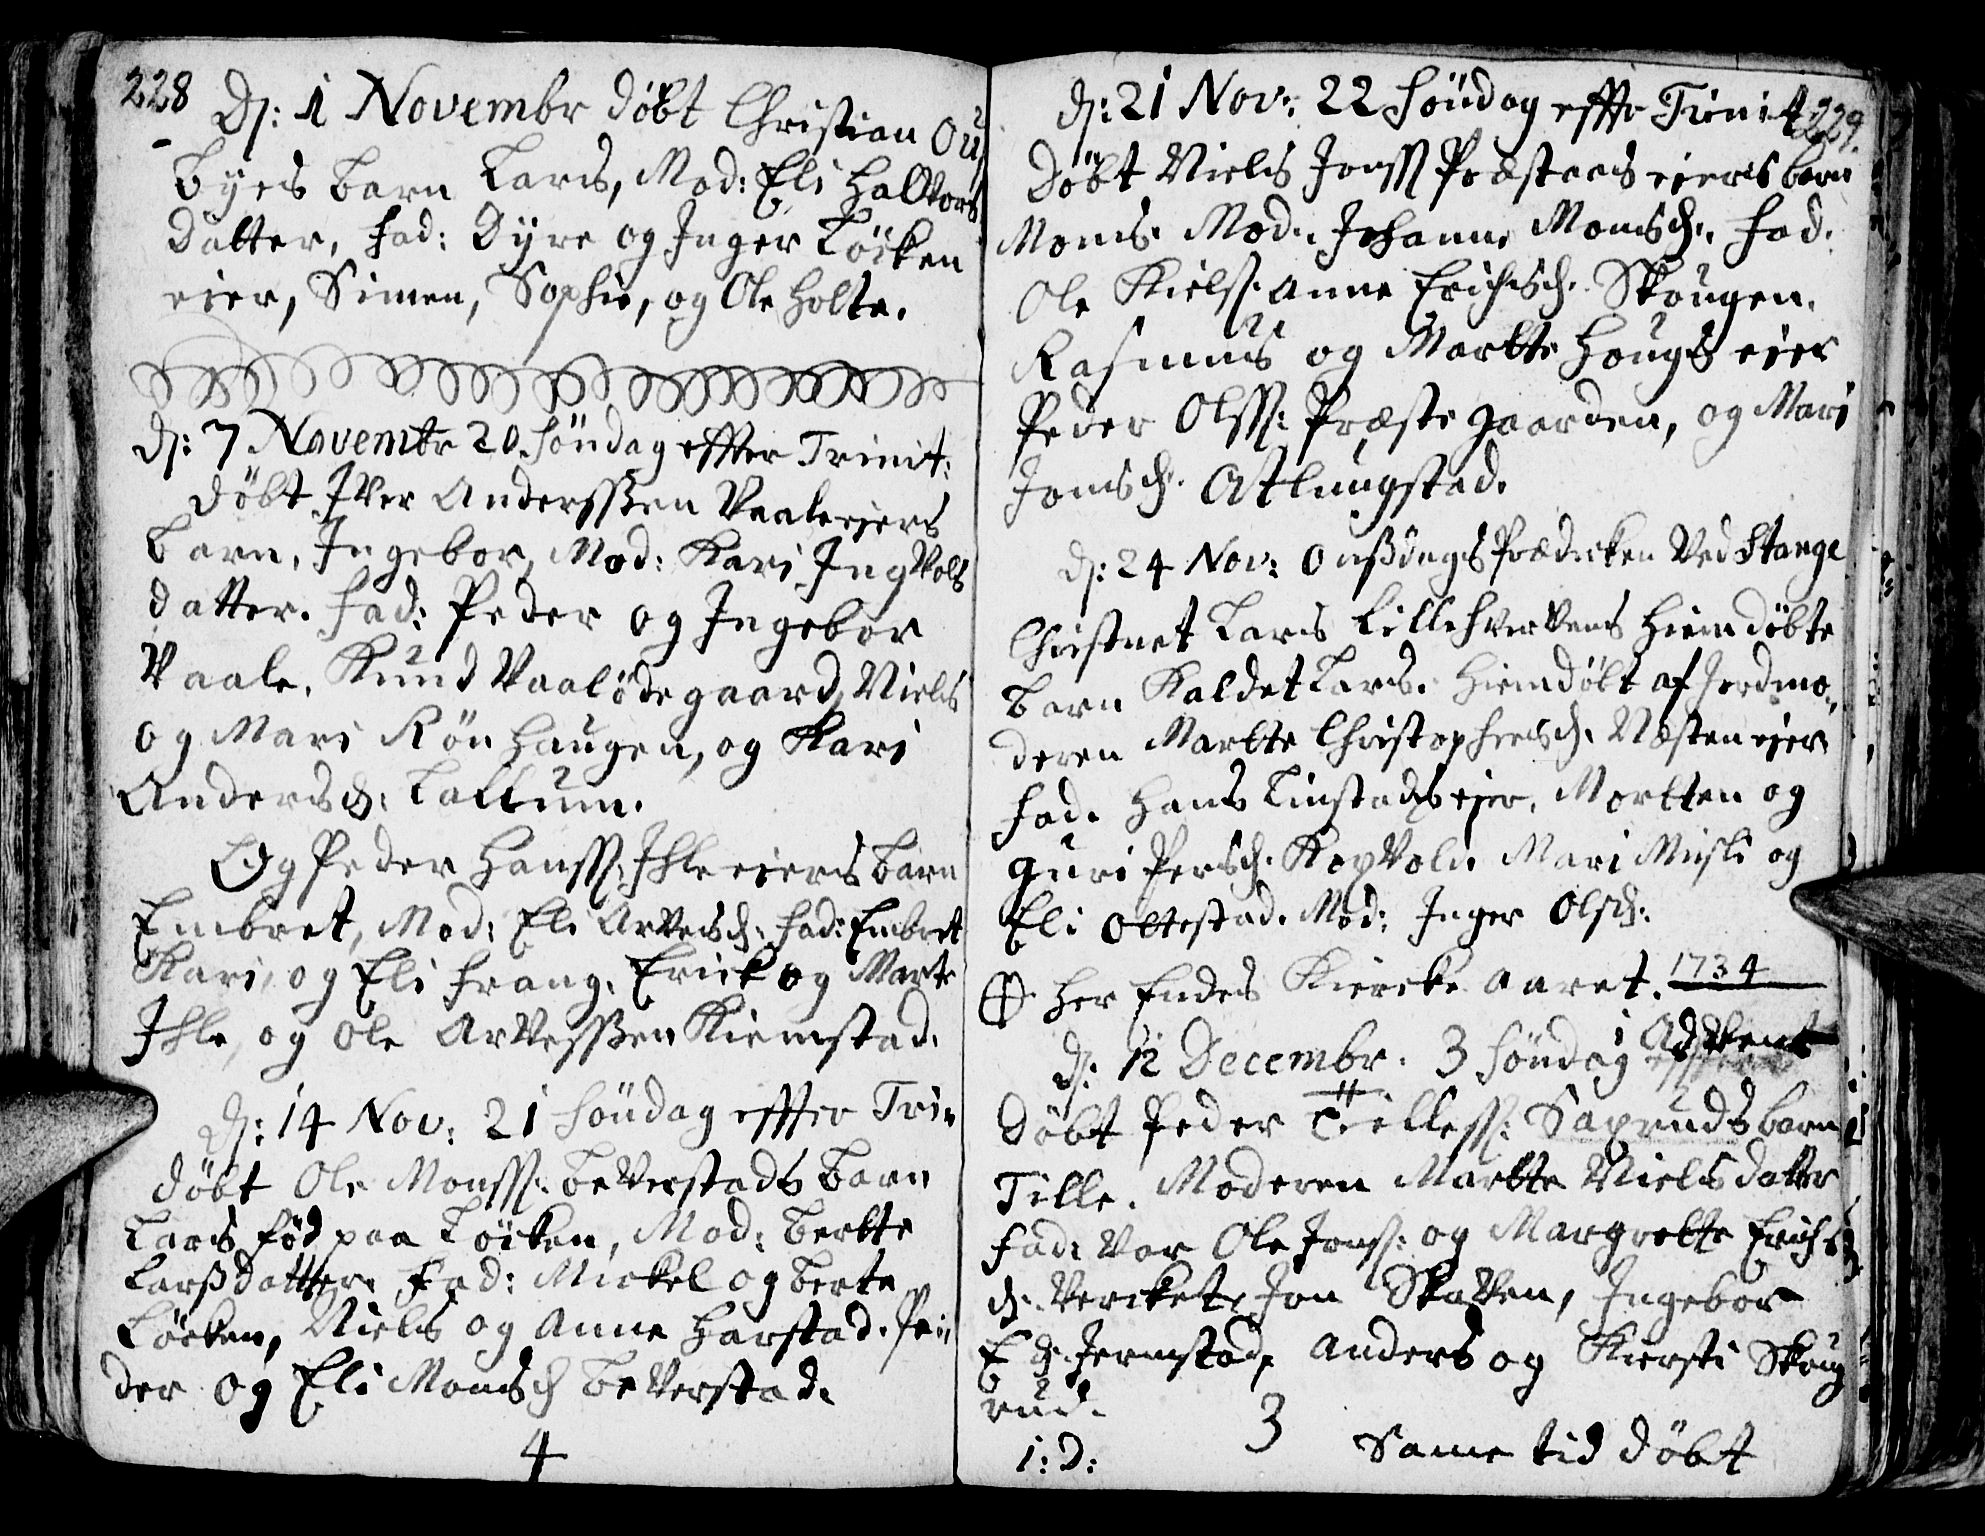 228
D: 1 Novembr døbt Christian Ou
byes barn Lars, Mod: Eli Halvors
datter, fad: Dyre og Inger Løcken
eier, Simen, Sophie, og Ole Holte.
D: 7 Novembr 20. Søndag effter Trinit:
døbt Iver Anderssen Vaale eiers
barn, Ingebor, Mod: Kari Ingvols
datter. fad: Peder og Ingebor
Vaale. Knud Vaalødegaard, Niels
og Mari Rønhaugen, og Kari
Andersd: Lallum.
Og Peder Hanss: Ihle eiers barn
Embret, Mod: Eli Arvesd. fad: Embret
Kari, og Eli frang. Erick og Marte
Ihle, og Ole Arvessen Kiemstad.
D: 14 Nov: 21 Søndag effter Tri-
døbt Ole Monss: beverstads barn
Lars fød paa Løcken, Mod: Bertte
Larsdatter. Fad: Mickel og Berte
Løcken, Niels og Anne Harstad. Pe
der og Eli Monsd beverstad.
4
229.
D: 21 Nov: 22 Søndag effte Trinit
Døbt Niels Jonss Præstens eiers barn
Mons. Mod. Johanne Monsd. fad.
Ole Kielss. Anne Erichsd. Skougen.
Rasmus og Martte Hougs eier
Peder Olss: Præste gaarden, og Mari
Jonsd. Atlungstad.
D: 24 Nov: Onsdags Prædicken ved Stange
Christnet Lars Lillehvervens hiemdøbte
barn kaldet Lars. hiemdøbt af Jordmo-
deren Martte Christophersd. Næsten eier
fad. Hans Linstads eier, Mortten og
Guri Persd. Kopvoln Mari Musli og
Eli Ottestad. Mod: Inger Olsd:
Her Endes Kiercke Aaret. 1734
D. 12 Decembr. 3 Søndag i Advent
Døbt Peder Tielless: Saxruds barn
Tille. Moderen Martte Nielsdatter
fad: var Ole Jonss: og Margrette Erichs
d. Vercket, Jon Skaven, Ingebor
E d. Jermstad, Anders og Kiersti Skoug
rud.
1: D: 3 Same tid døbt